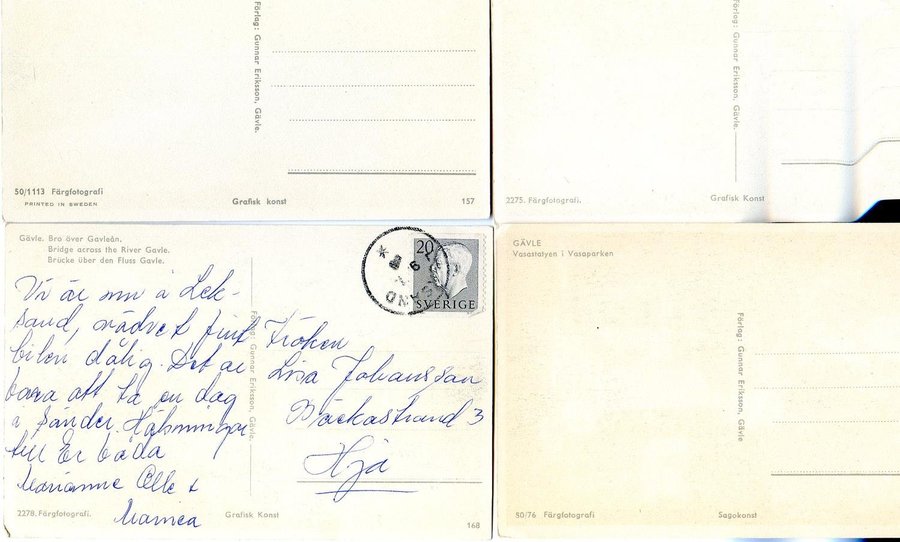 Förlag: Gunnar Eriksson, Gävle.
50/1113 Färgfotografi
PRINTED IN SWEDEN
Grafisk konst
157
Förlag: Gunnar Eriksson, Gävle.
2275. Färgfotografi.
Grafisk Konst
Gävle. Bro över Gavleån.
Bridge across the River Gavle.
Brücke über den Fluss Gavle.
20
SVERIGE
Vi är nu i Lek-
sand, vädret fint
bilen dålig. Det är
bara att ta en dag
i sänder. Hälsningar
till Er båda
Marianne Olle +
Fröken
Lisa Johansson
Bäckastrand 3
Hjo
Förlag: Gunnar Eriksson, Gävle.
2278. Färgfotografi.
Grafisk Konst
168
GÄVLE
Vasastatyen i Vasaparken
Förlag: Gunnar Eriksson, Gävle
50/76 Färgfotografi
Sagokonst